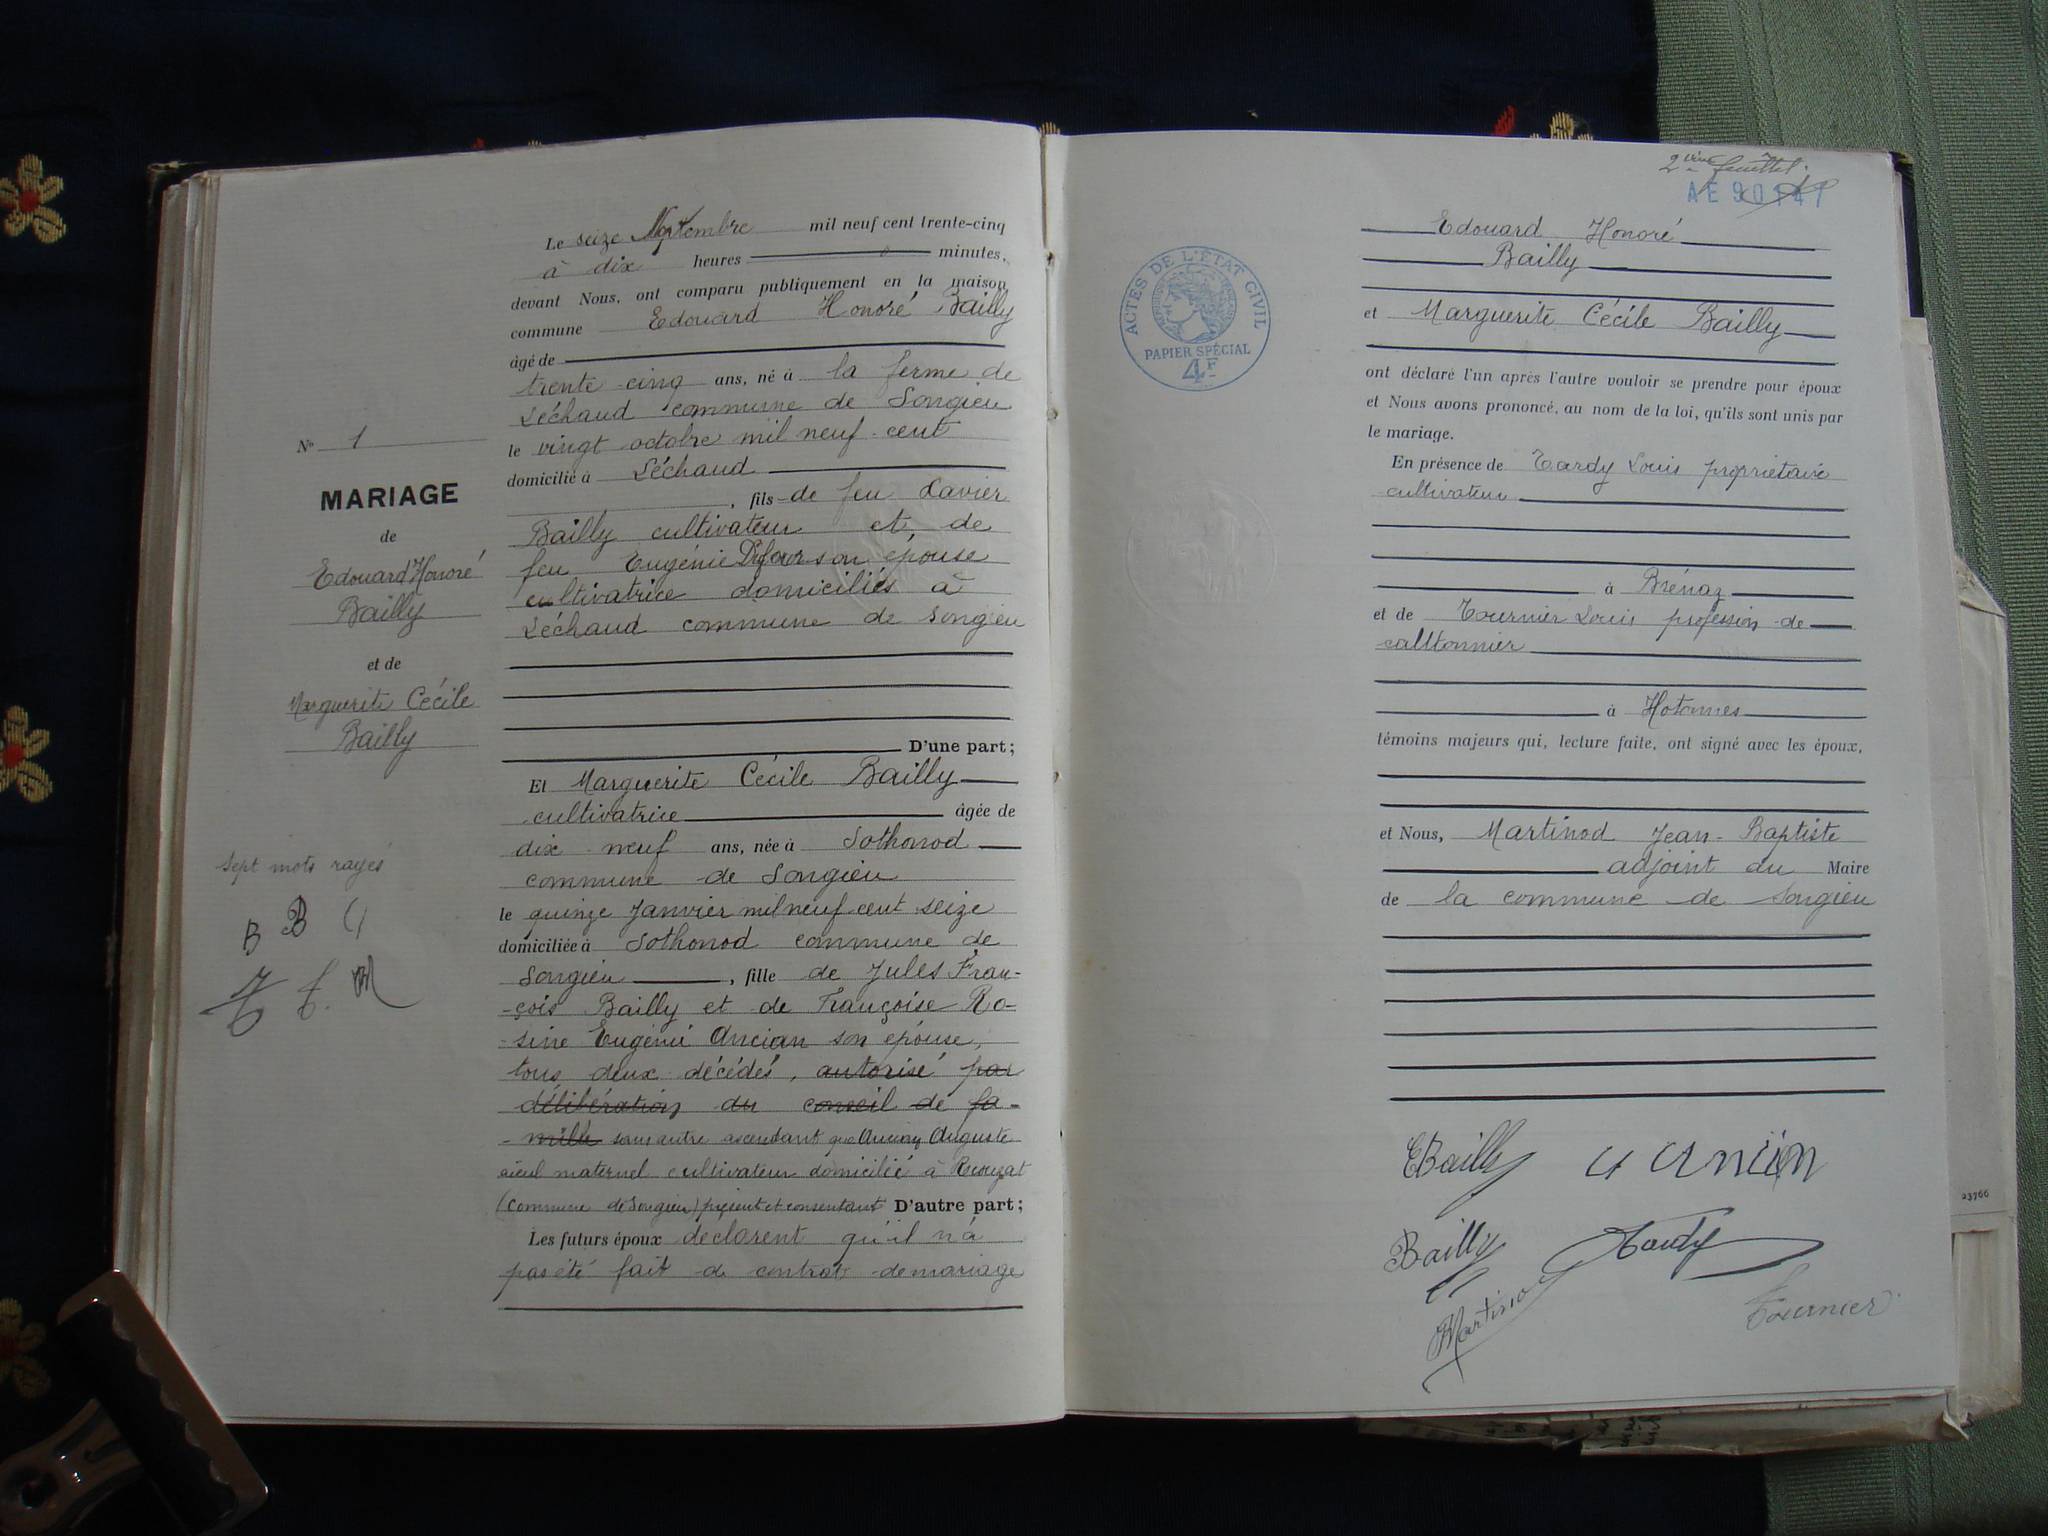 Le seize Septembre mil neuf cent trente-cinq
à dix heures minutes,
devant Nous, ont comparu publiquement en la maison
commune Edouard Honoré Bailly
âgé de
trente-cinq ans, né à la ferme de
Léchaud commune de Songieu
le vingt octobre mil neuf-cent
domicilié à Léchaud
, fils de feu Xavier
Bailly cultivateur et de
feu Eugénie son épouse
cultivatrice domiciliés à
Léchaud commune de Songieu
D'une part;
Et Marguerite Cécile Bailly
cultivatrice âgée de
dix neuf ans, née à Sothonod
commune de Songieu
le quinze Janvier mil neuf-cent seize
domiciliée à Sothonod commune de
Songieu , fille de Jules Fran-
-çois Bailly et de Françoise Ro-
-sine Eugénie Ancian son épouse,
tous deux décédés, autorisé par
délibération du conseil de fa-
-mille sans autre ascendant que Ancian Auguste
aïeul maternel cultivateur domicilié à
(Commune de Songieu) présent et consentant D'autre part;
Les futurs époux declarent qu'il n'a
pas été fait de contrat de mariage
N° 1
MARIAGE
de
Edouard Honoré
Bailly
et de
Marguerite Cécile
Bailly
Sept mots rayés
B B
T T. M
2ième feuillet.
AE 90147
ACTES DE L'ÉTAT CIVIL
PAPIER SPÉCIAL
4F
Edouard Honoré
Bailly
et Marguerite Cécile Bailly
ont déclaré l'un après l'autre vouloir se prendre pour époux
et Nous avons prononcé, au nom de la loi, qu'ils sont unis par
le mariage.
En présence de Tardy Louis propriétaire
cultivateur
à Brénaz
et de Tournier Louis profession de
à Hotonnes
témoins majeurs qui, lecture faite, ont signé avec les époux,
et Nous, Martinod Jean-Baptiste
adjoint au Maire
de la commune de Songieu
EBailly
Bailly Tardy
Martinod
Tournier
23766